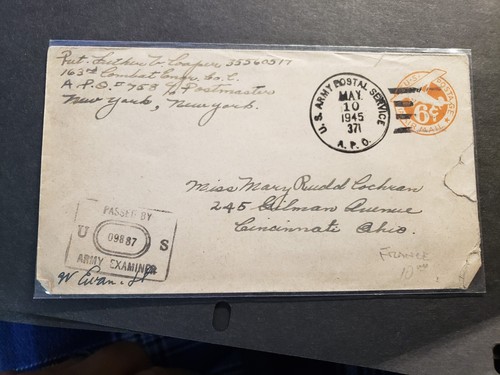 Pvt. Luther V. Cooper 35560517
163rd Combat Engr. Co. C.
A.P.O. # 758 % Postmaster
New York, New York.
U.S. ARMY POSTAL SERVICE
MAY
10
1945
371
A.P.O.
POSTAGE
6¢
AIR MAIL
Miss Mary Rudd Cochran
245 Gilman Avenue
Cincinnati Ohio.
PASSED BY
U 09887 S
ARMY EXAMINER
FRANCE
10.00